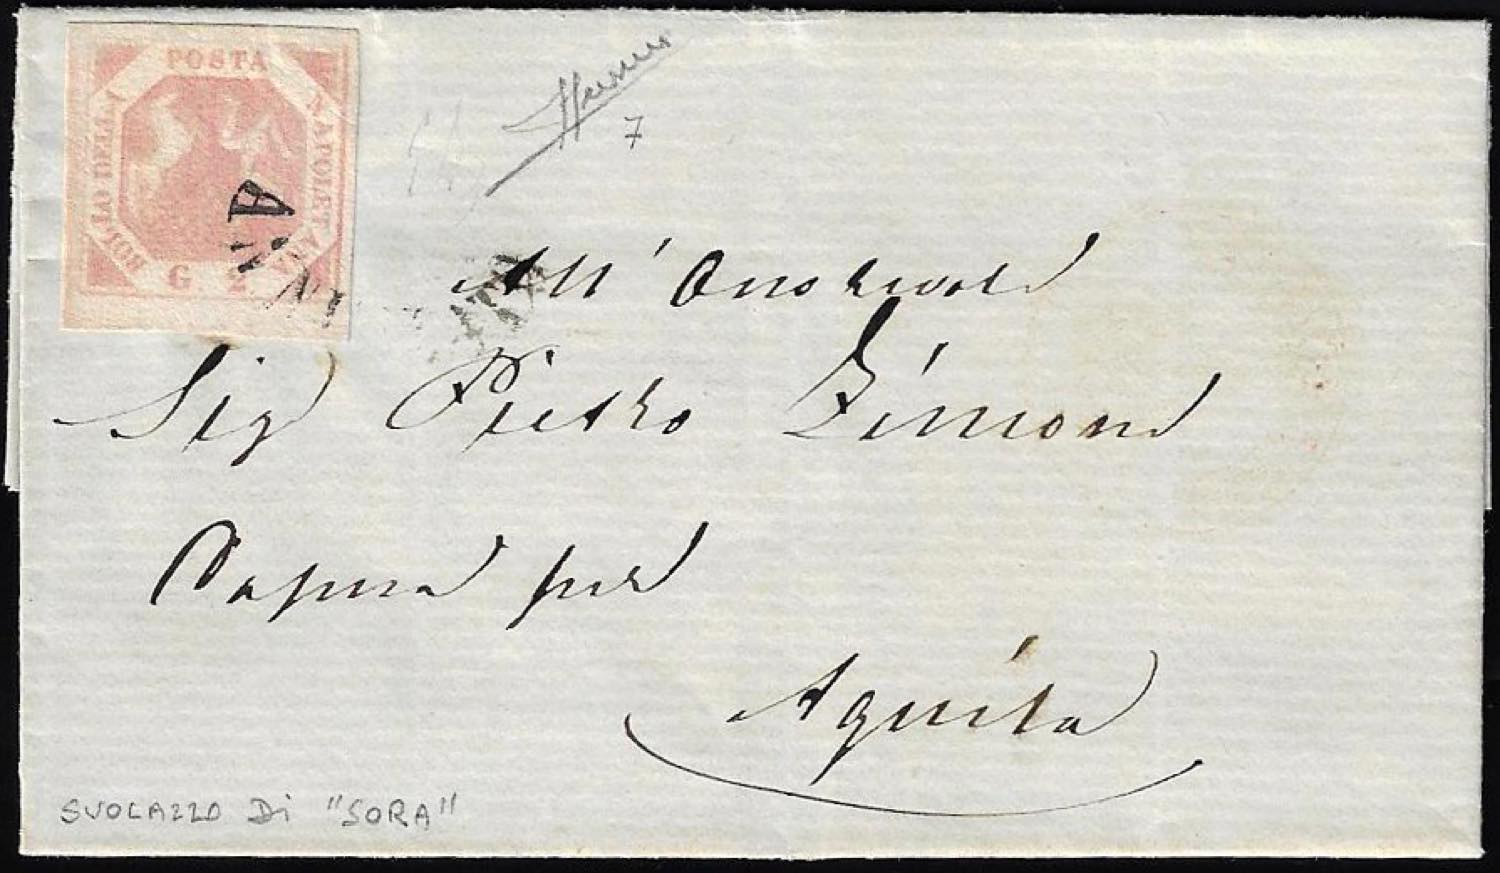 POSTA
NAPOLETANA
BOLLO DELLA
G 2
A
7
All' Onorevole
Sig Pietro Simone
Capua per
Aquila
SVOLAZZO Di "SORA"